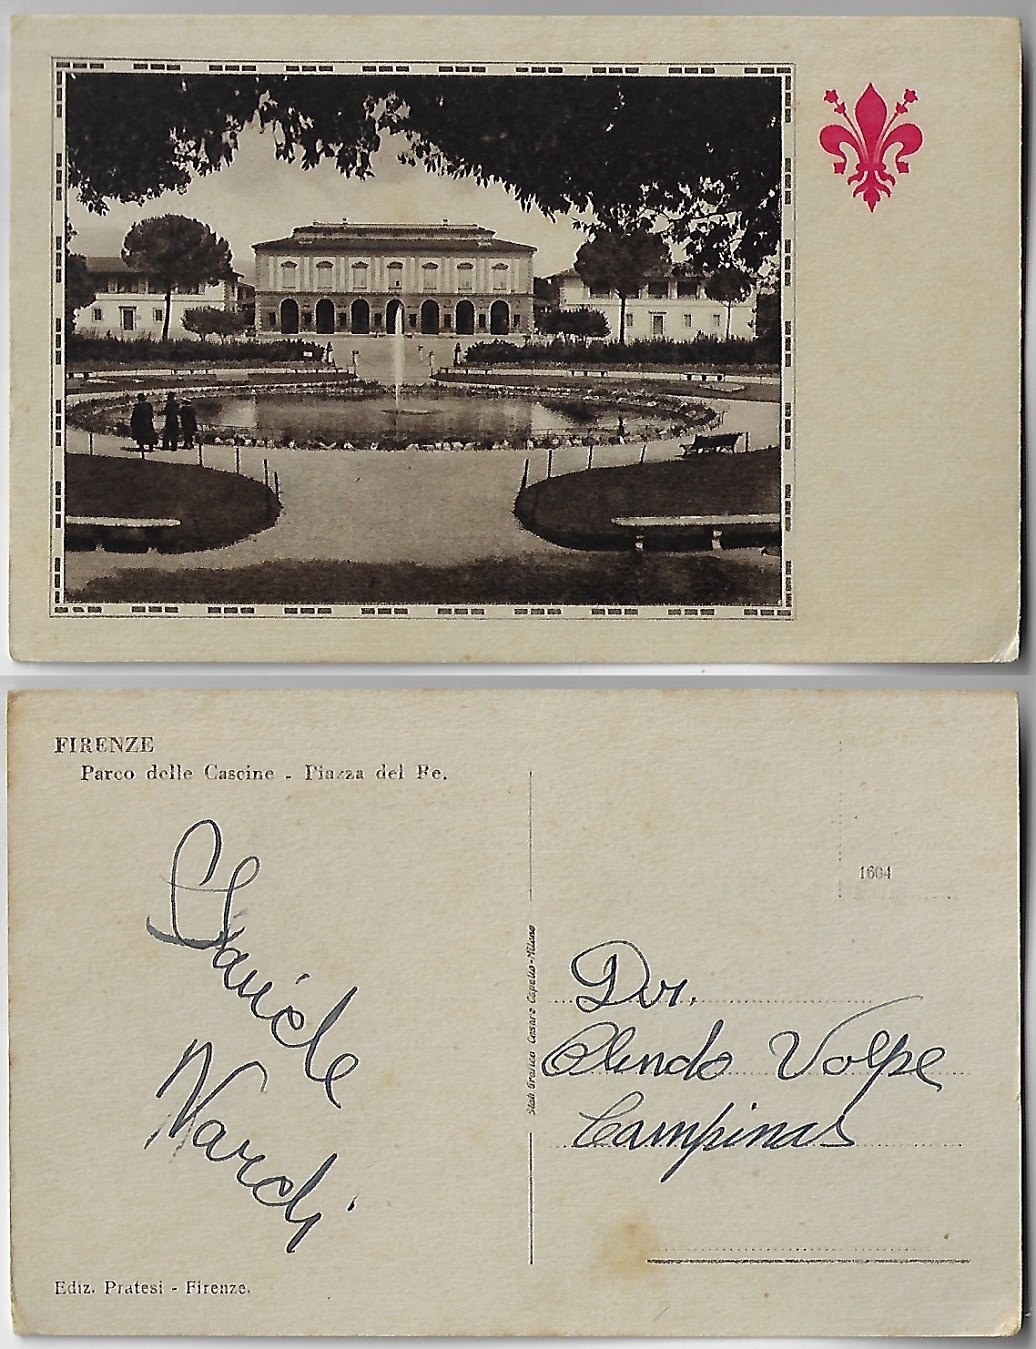 FIRENZE
Parco delle Cascine - Piazza del Re.
1604
Stab. Grafico Cesare Capello - Milano
Daniele
Nardi
Dr.
Volpe
Campinas
Ediz. Pratesi - Firenze.